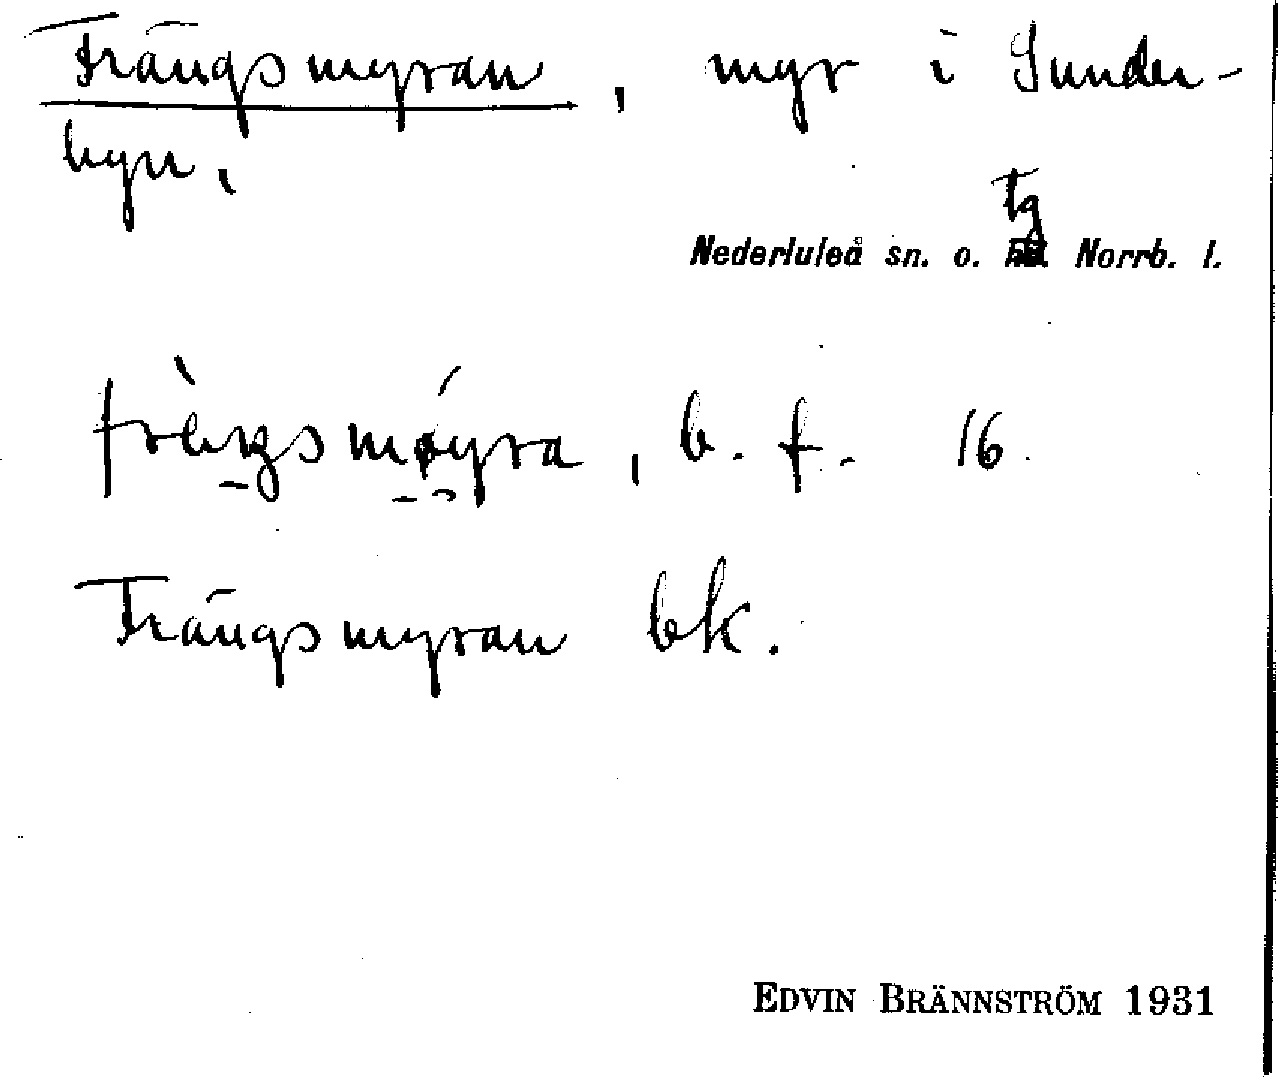 Trängsmyran, myr i Sunder-
byn,
tg
Nederluleå sn. o. Norrb. l.
b. f. 16.
Trängsmyran bk.
EDVIN BRÄNNSTRÖM 1931